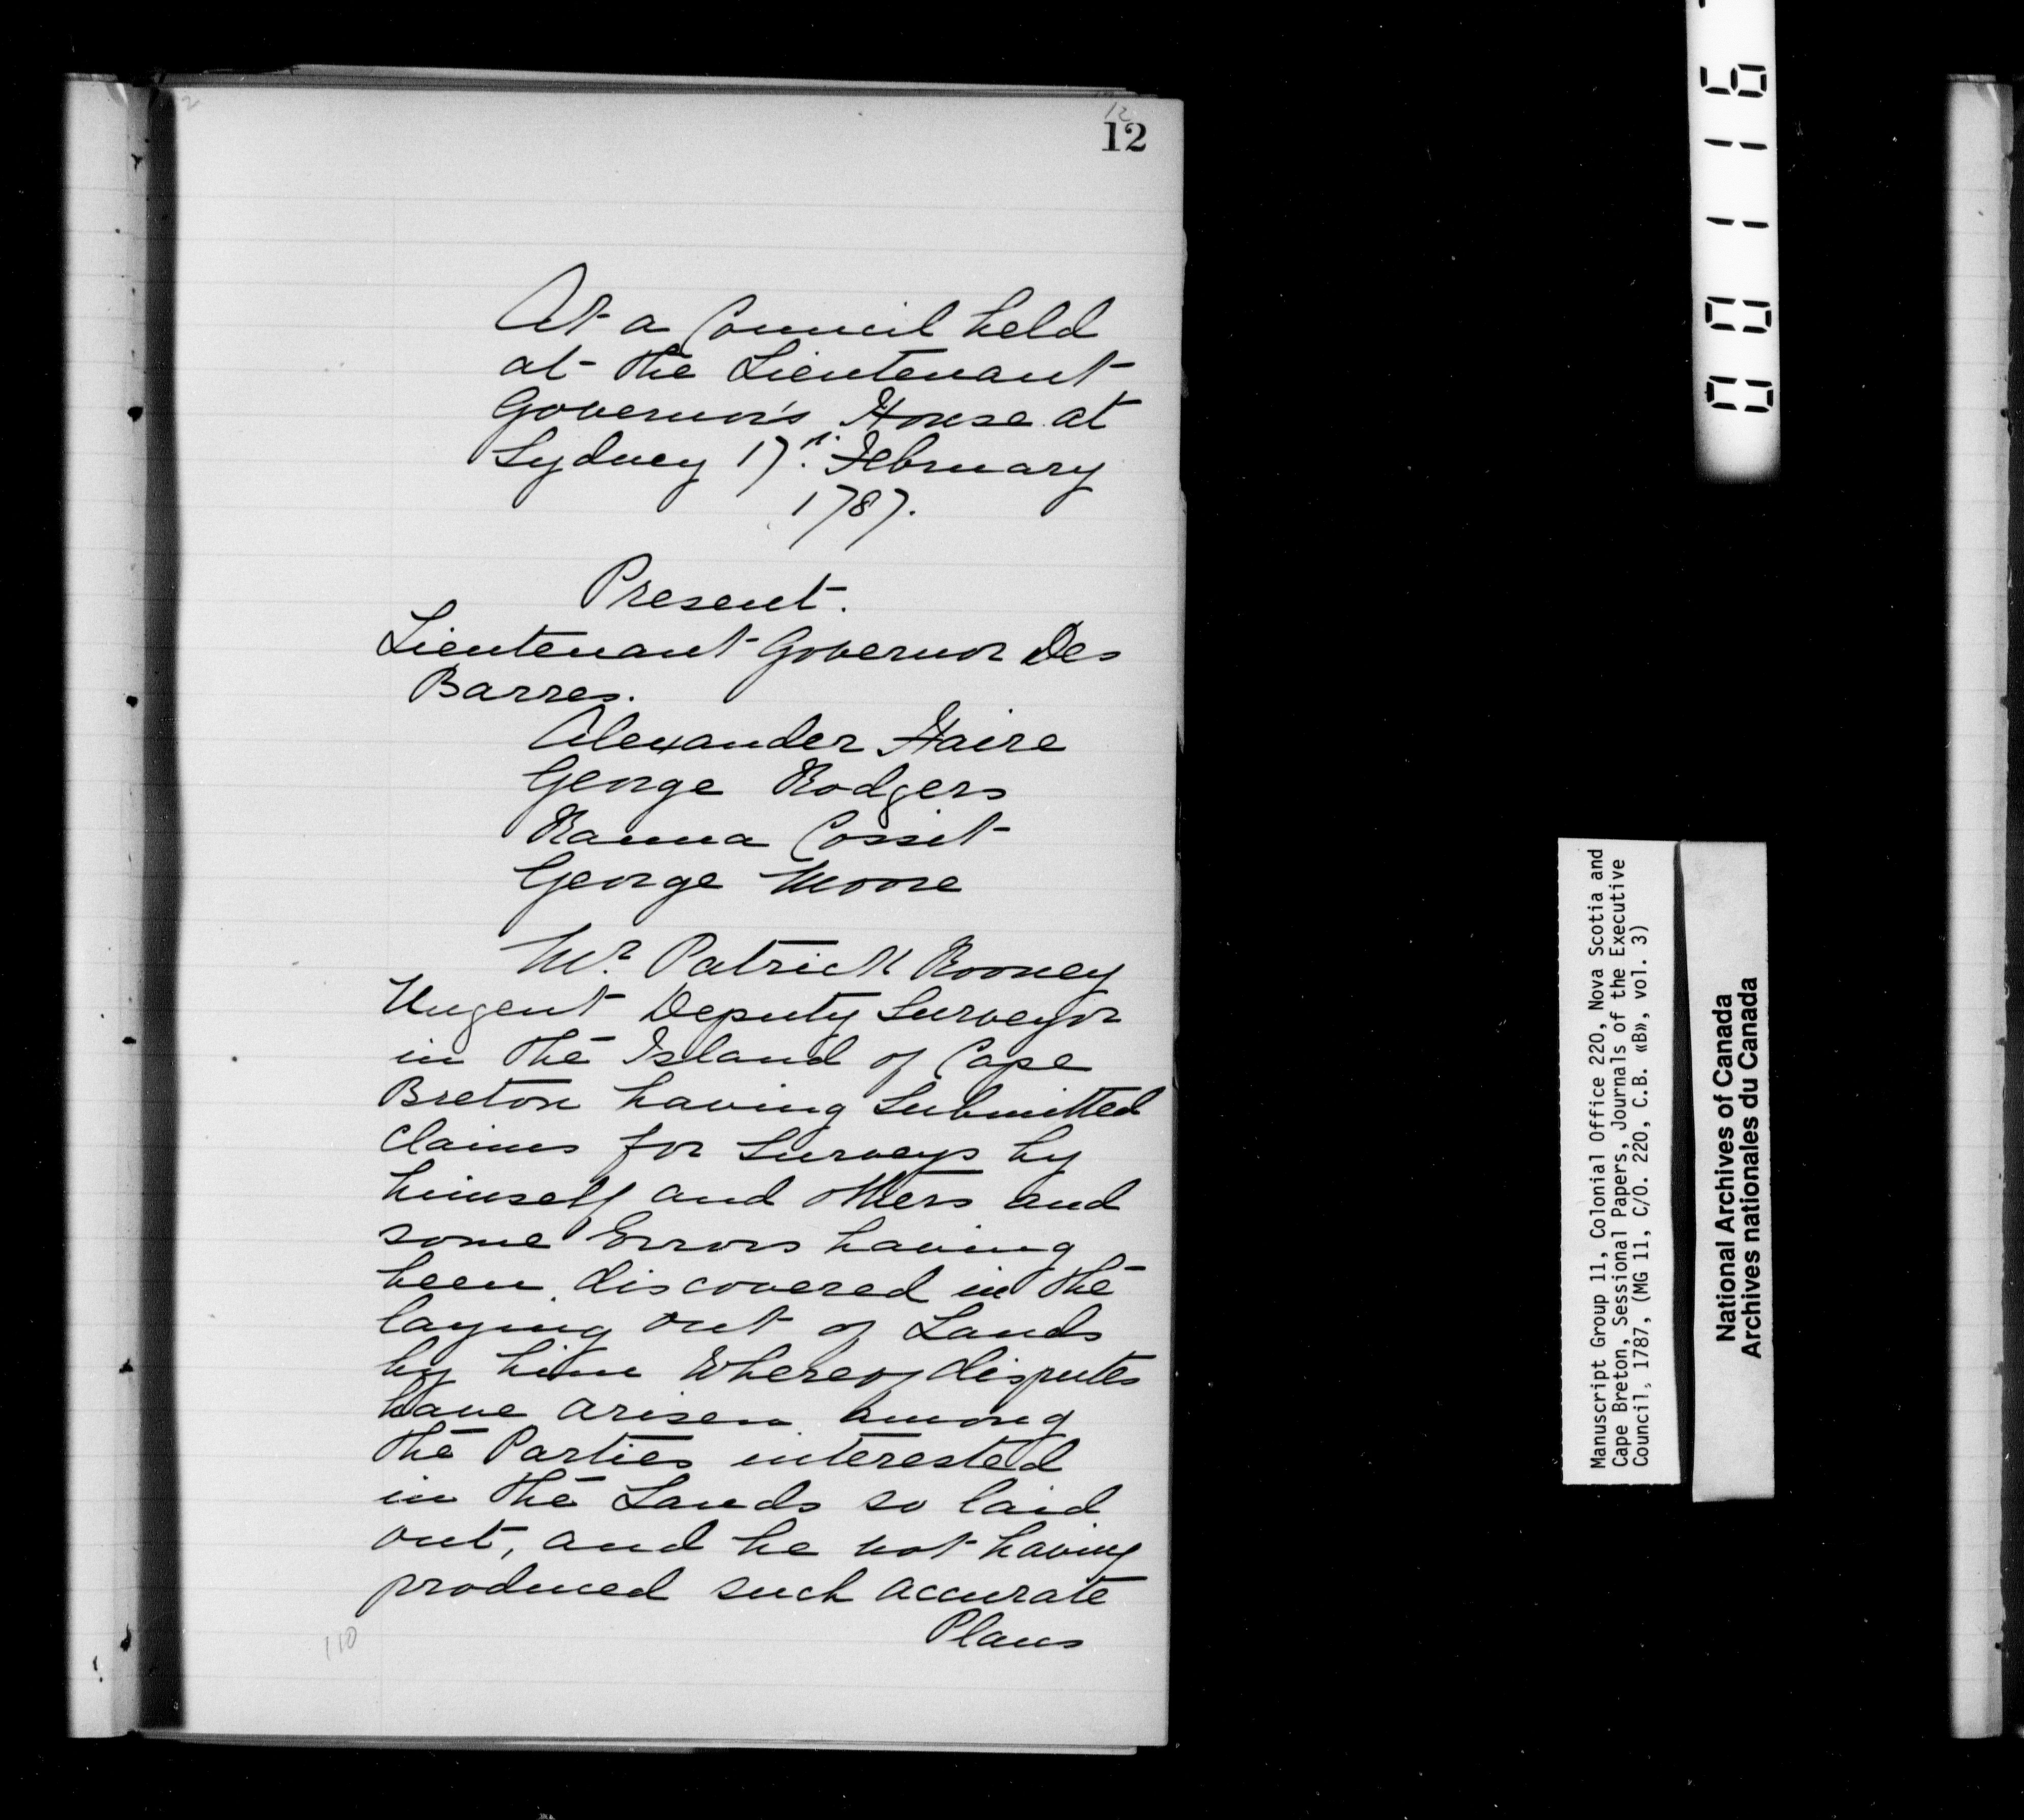 12
12
At a Council held
at the Lieutenant
Governor's House at
Sydney 17th. February
1787.
Present.
Lieutenant Governor Des
Barres.
Alexander Haire
George Rodgers
Ranna Cossit
George Moore
Mr. Patrick Rooney
Nugent Deputy Surveyor
in the Island of Cape
Breton having Submitted
claims for Surveys by
himself and others and
some Errors having
been discovered in the
laying out of Lands
by him Whereof disputes
have arisen among
the Parties interested
in the Lands so laid
out, and he not having
produced such accurate
Plans
110
001116
Manuscript Group 11, Colonial Office 220, Nova Scotia and
Cape Breton, Sessional Papers, Journals of the Executive
Council, 1787, (MG 11, C/O. 220, C.B. «B», vol. 3)
National Archives of Canada
Archives nationales du Canada